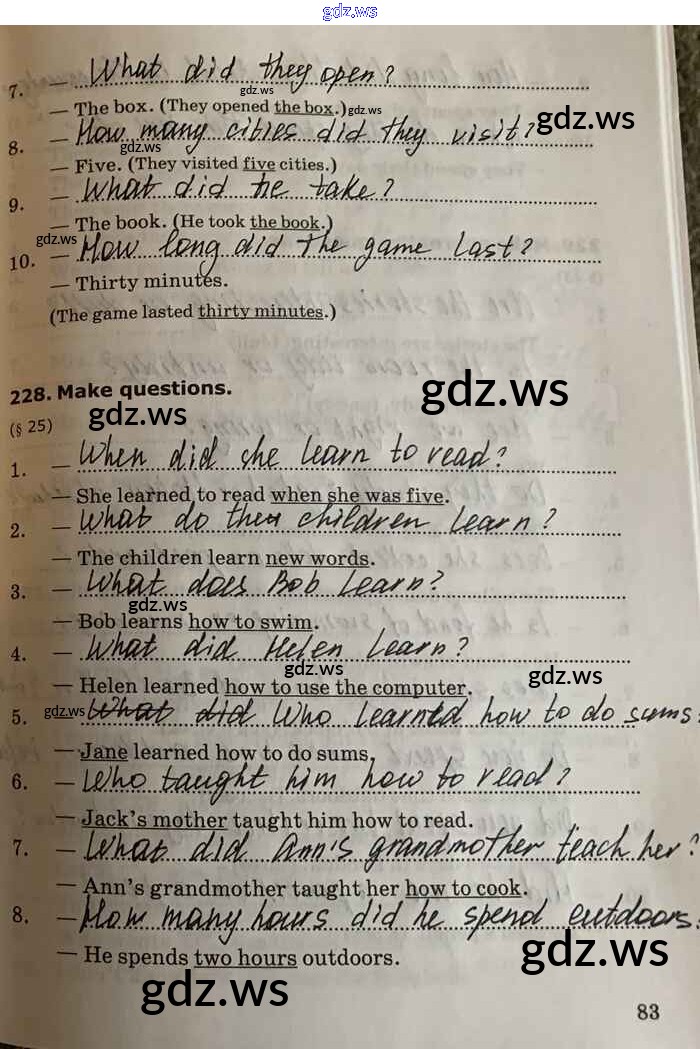 gdz.ws
7. — What did they open?
gdz.ws
— The box. (They opened the box.)
gdz.ws
8. — How many cities did they visit?
gdz.ws
gdz.ws
— Five. (They visited five cities.)
9. — What did he take?
— The book. (He took the book.)
gdz.ws
10. — How long did the game last?
— Thirty minutes.
(The game lasted thirty minutes.)
228. Make questions.
gdz.ws
gdz.ws
(§ 25)
1. — When did she learn to read?
— She learned to read when she was five.
2. — What do the children learn?
— The children learn new words.
3. — What does Bob learn?
gdz.ws
— Bob learns how to swim.
4. — What did Helen learn?
gdz.ws
gdz.ws
— Helen learned how to use the computer.
5. gdz.ws What did Who learned how to do sums
— Jane learned how to do sums.
6. — Who taught him how to read?
— Jack's mother taught him how to read.
7. — What did Ann's grandmother teach her?
— Ann's grandmother taught her how to cook.
8. — How many hours did he spend outdoors
— He spends two hours outdoors.
gdz.ws
gdz.ws
83